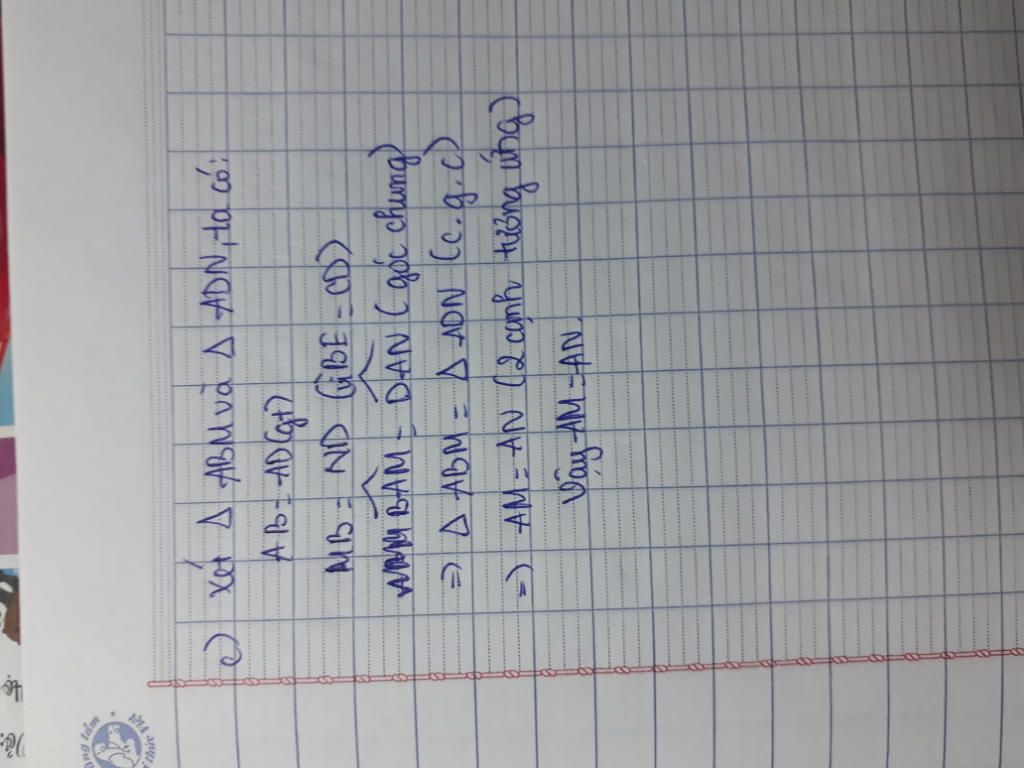 c) Xét Δ ABM và Δ ADN, ta có:
AB = AD (gt)
MB = ND (vì BE = CD)
BAM = DAN (góc chung)
=) Δ ABM = Δ ADN (c.g.c)
=) AM = AN (2 cạnh tương ứng)
Vậy AM = AN.